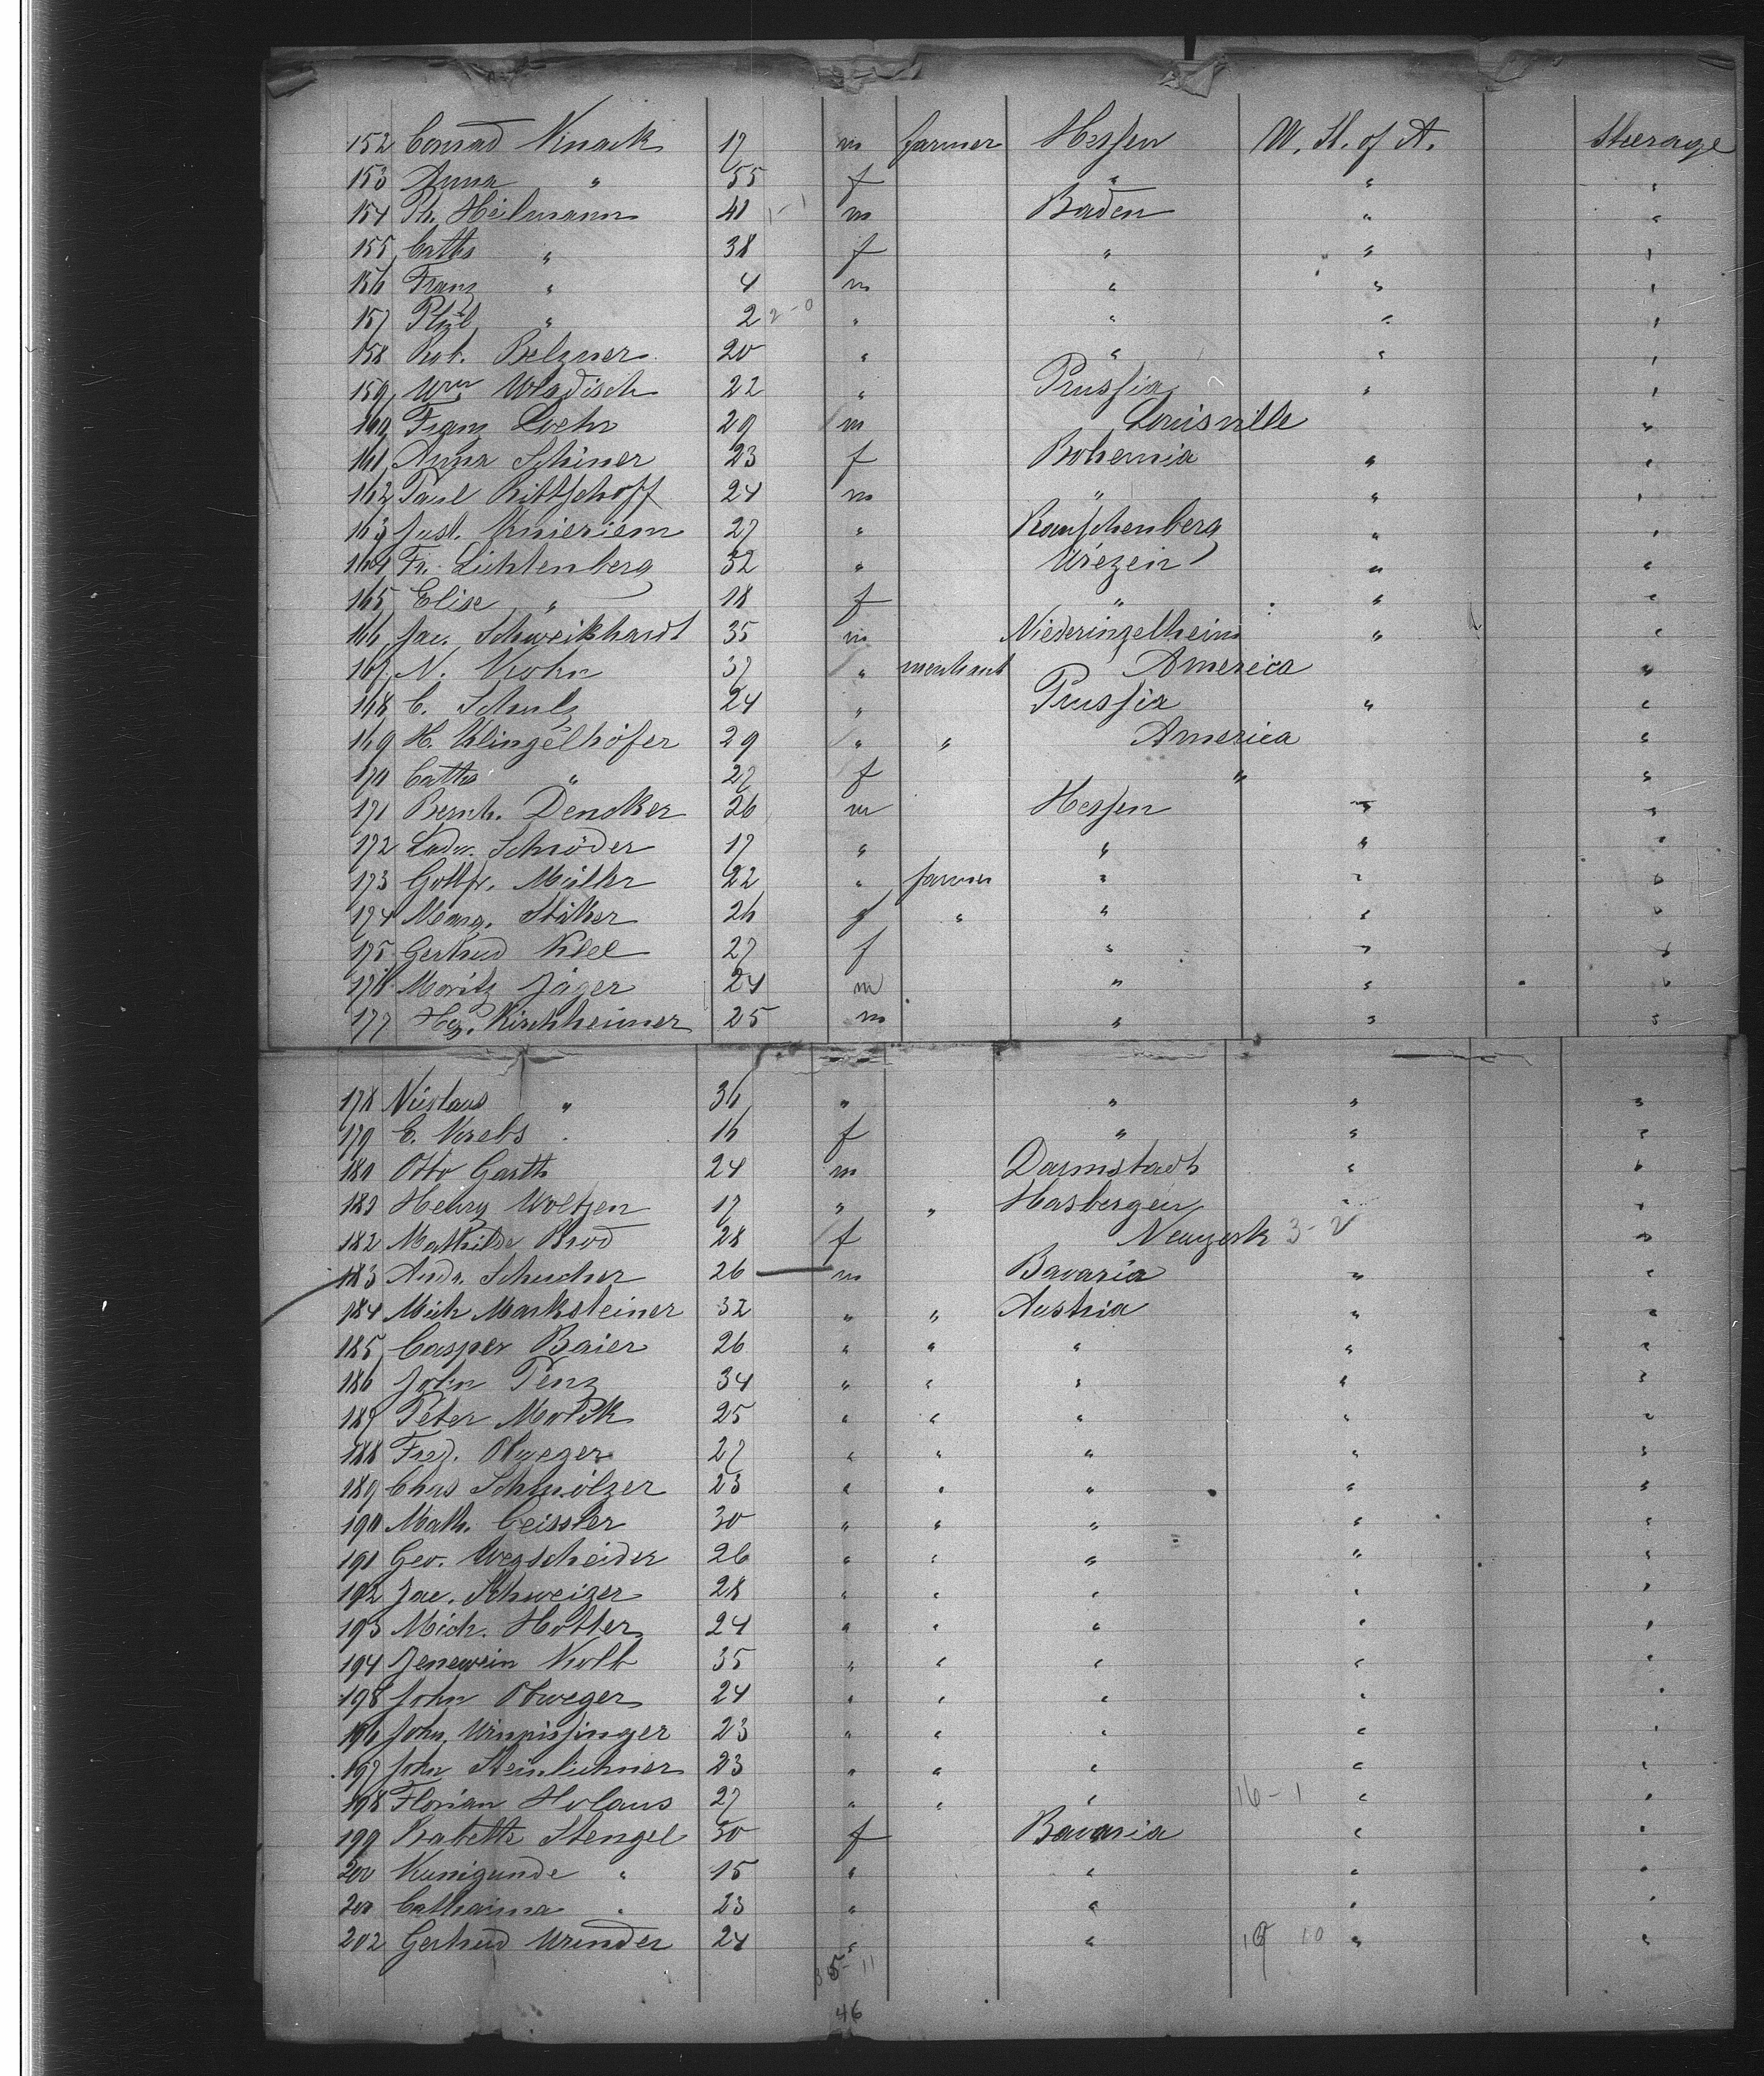 152 Conrad Knack 17 m farmer Hessen U. St. of A. Steerage
153 Anna " 55 f " " "
154 Ph. Heilmann 41 1-1 m Baden " "
155 Cath. " 38 f " " "
156 Franz " 4 m " " "
157 Phil " 2 2-0 " " " "
158 Rob. Belzner 20 " " " "
159 Wm Wladisch 22 " Prussia " "
160 Franz Loehr 29 m Louisville "
161 Anna Schiner 23 f Bohemia " "
162 Paul Rittschoff 24 m " " "
163 Just. Knieriem 27 " Rauschenberg " "
164 Fr. Lichtenberg 32 " " "
165 Elise " 18 f " " "
166 Jac. Schweikhardt 35 m Niederingelheim " "
167 N. Kohn 37 " merchant America "
168 C. Schulz 24 " Prussia " "
169 H. Klingelhöfer 29 " " America "
170 Cath. " 27 f " "
171 Bernh. Dencker 26 m Hessen " "
172 Ludw. Schröder 17 " " " "
173 Gottfr. Müller 22 " farmer " " "
174 Marg. Stüker 26 f " " " "
175 Gertrud Klee 27 f " " "
176 Moritz Jäger 24 m " " "
177 Hez. Kirchheimer 25 m " " "
178 " 36 " " " "
179 E. Krebs 16 f " " "
180 Otto Garth 24 m Darmstadt " "
181 Henry Woltjen 17 " " Hasbergen " "
182 Mathilde Brod 28 f Newyork 3-2 "
183 Andr. Schucher 26 m Bavaria " "
184 Mich Marksteiner 32 " " Austria " "
185 Casper Baier 26 " " " " "
186 John Penz 34 " " " " "
187 Peter Molik 25 " " " " "
188 Fred. Obweger 27 " " " " "
189 Chas Schmölzer 23 " " " " "
190 Math. Geissler 30 " " " " "
191 Geo. Wegscheider 26 " " " " "
192 Jac. Schweizer 28 " " " " "
193 Mich. Hotter 24 " " " " "
194 Jenewein Kolb 35 " " " " "
195 John Obweger 24 " " " " "
196 John 23 " " " " "
197 John Steinlichner 23 " " " " "
198 Florian Holaus 27 " " " 16-1 " "
199 Babette Stengel 30 f Bavaria " "
200 Kunigunde " 15 " " " "
201 Catharina " 23 " " " "
202 Gertrud 24 " " 10 " "
35-11
46